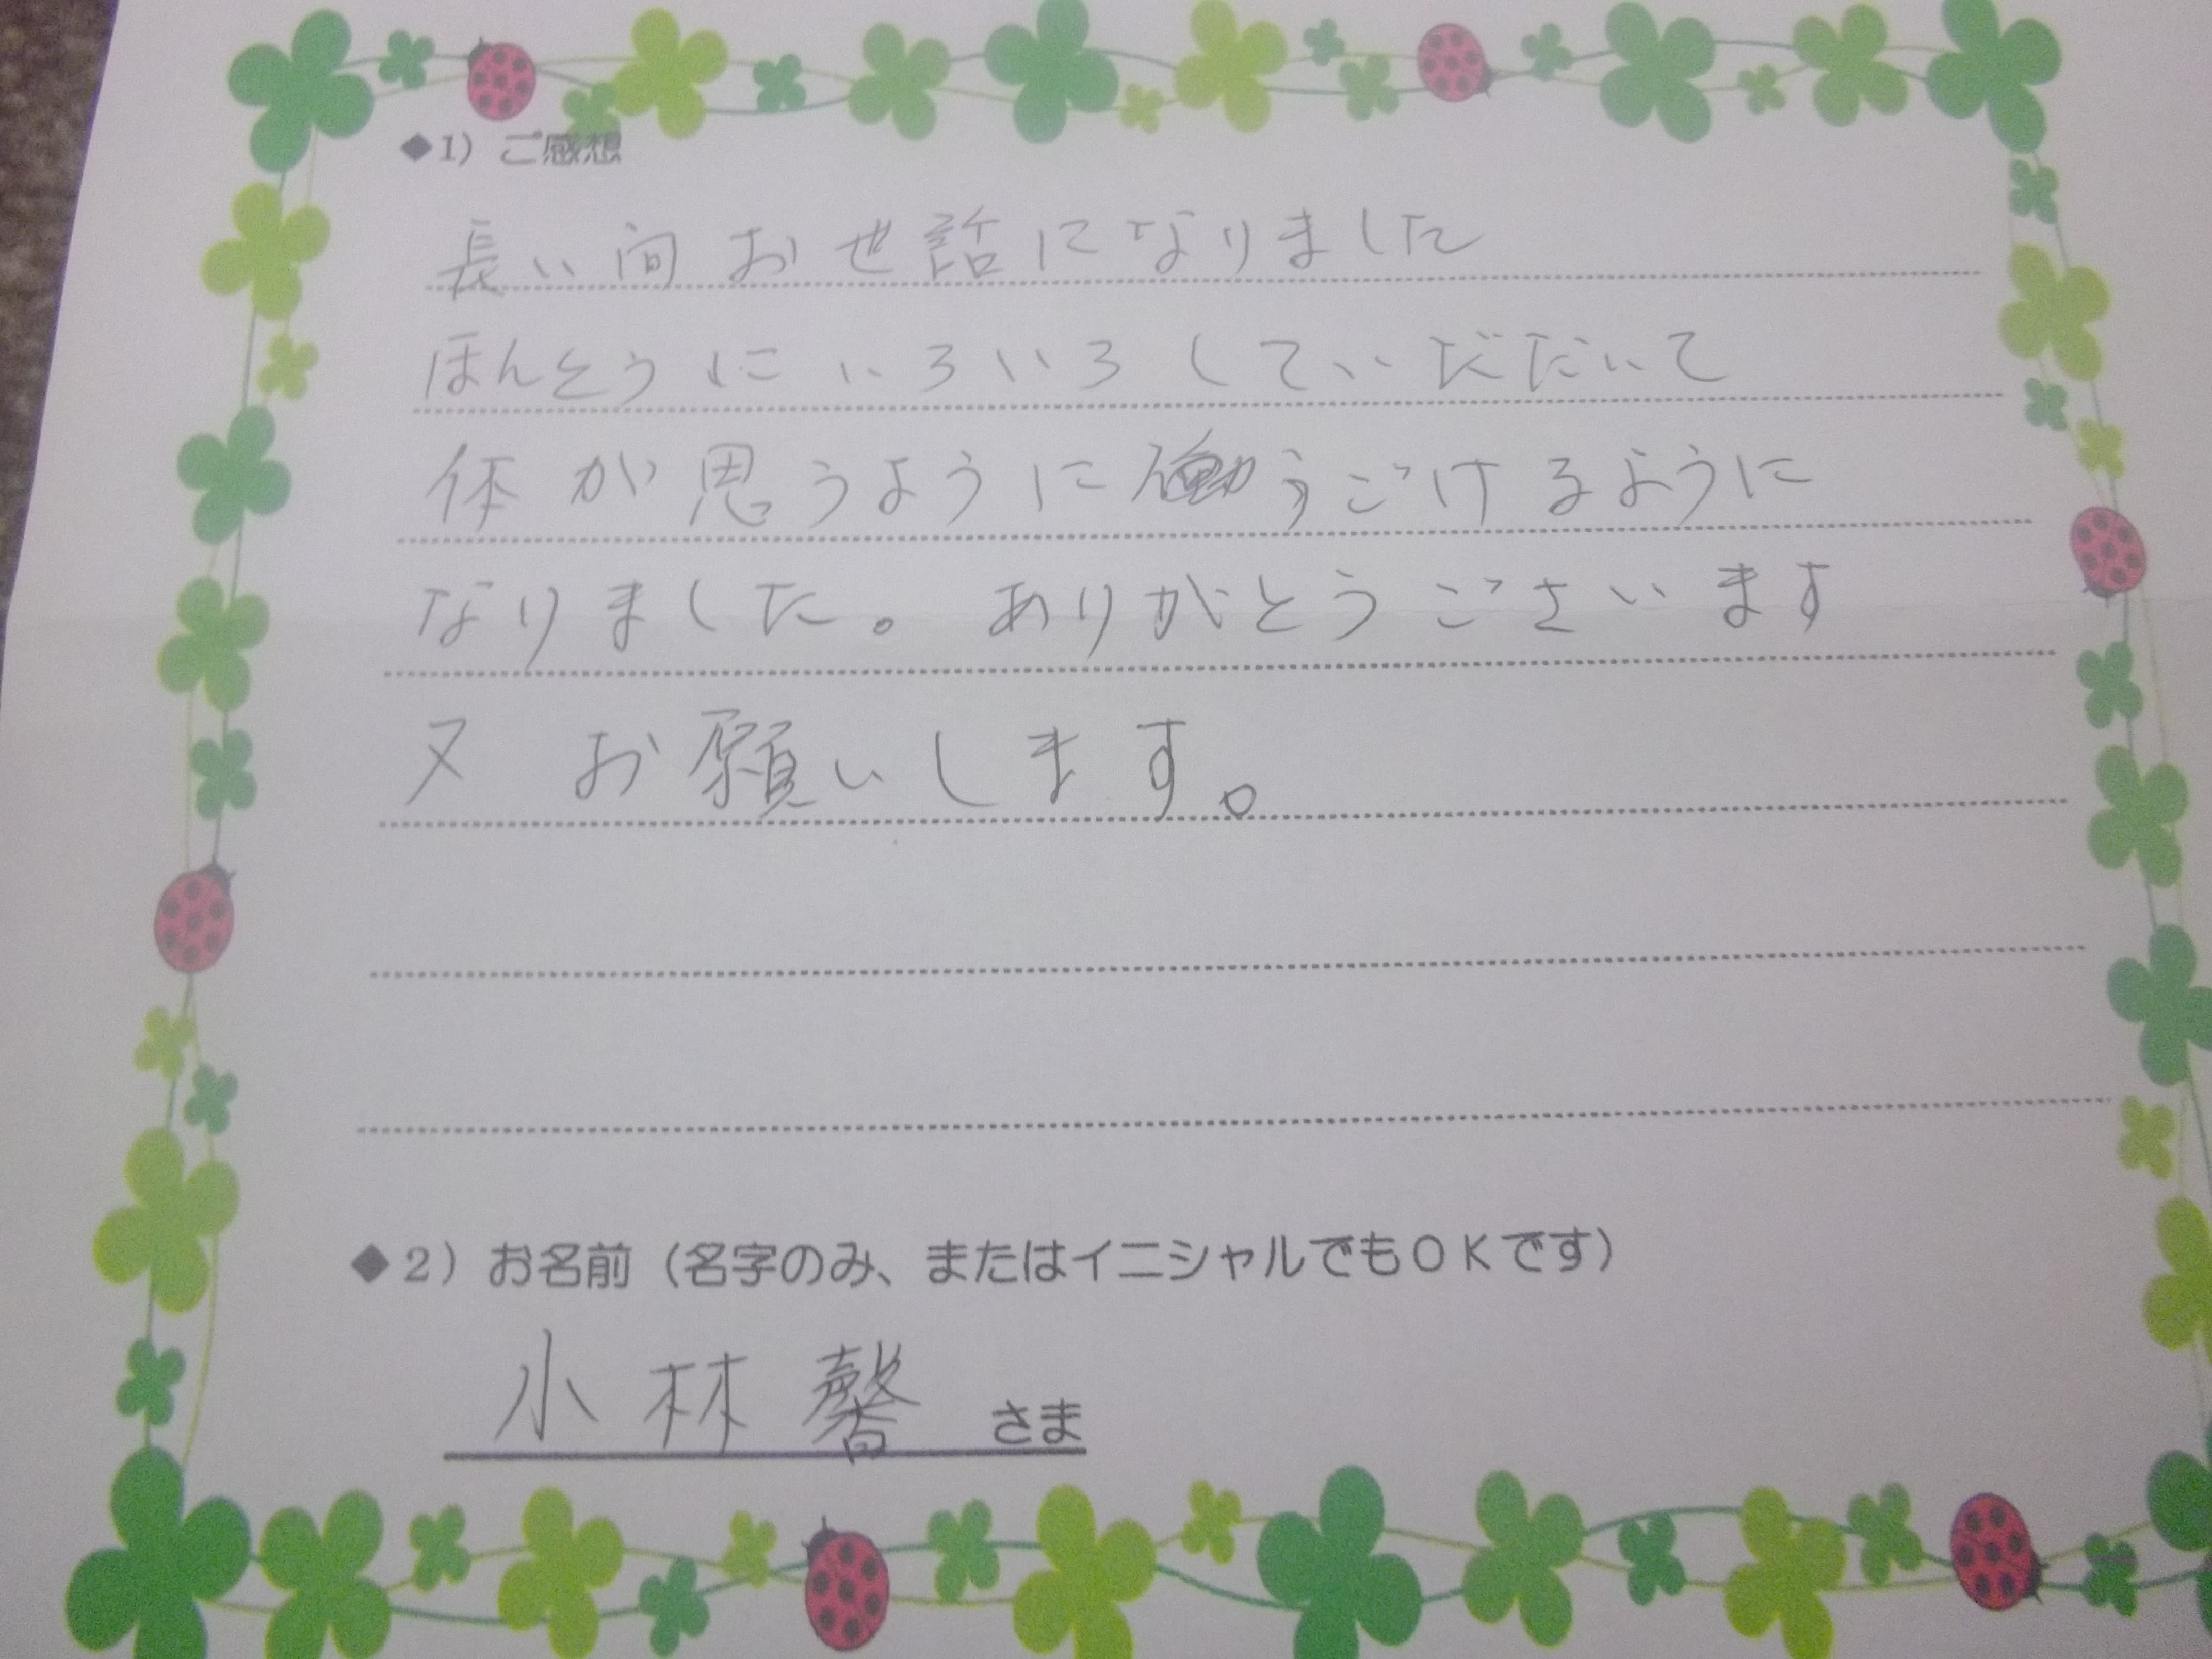 ◆1）ご感想
長い間お世話になりました
ほんとうにいろいろしていだだいて
体が思うように うごけるように
なりました。ありがとうございます
又 お願いします。
◆2）お名前（名字のみ、またはイニシャルでもＯＫです）
小林馨 さま